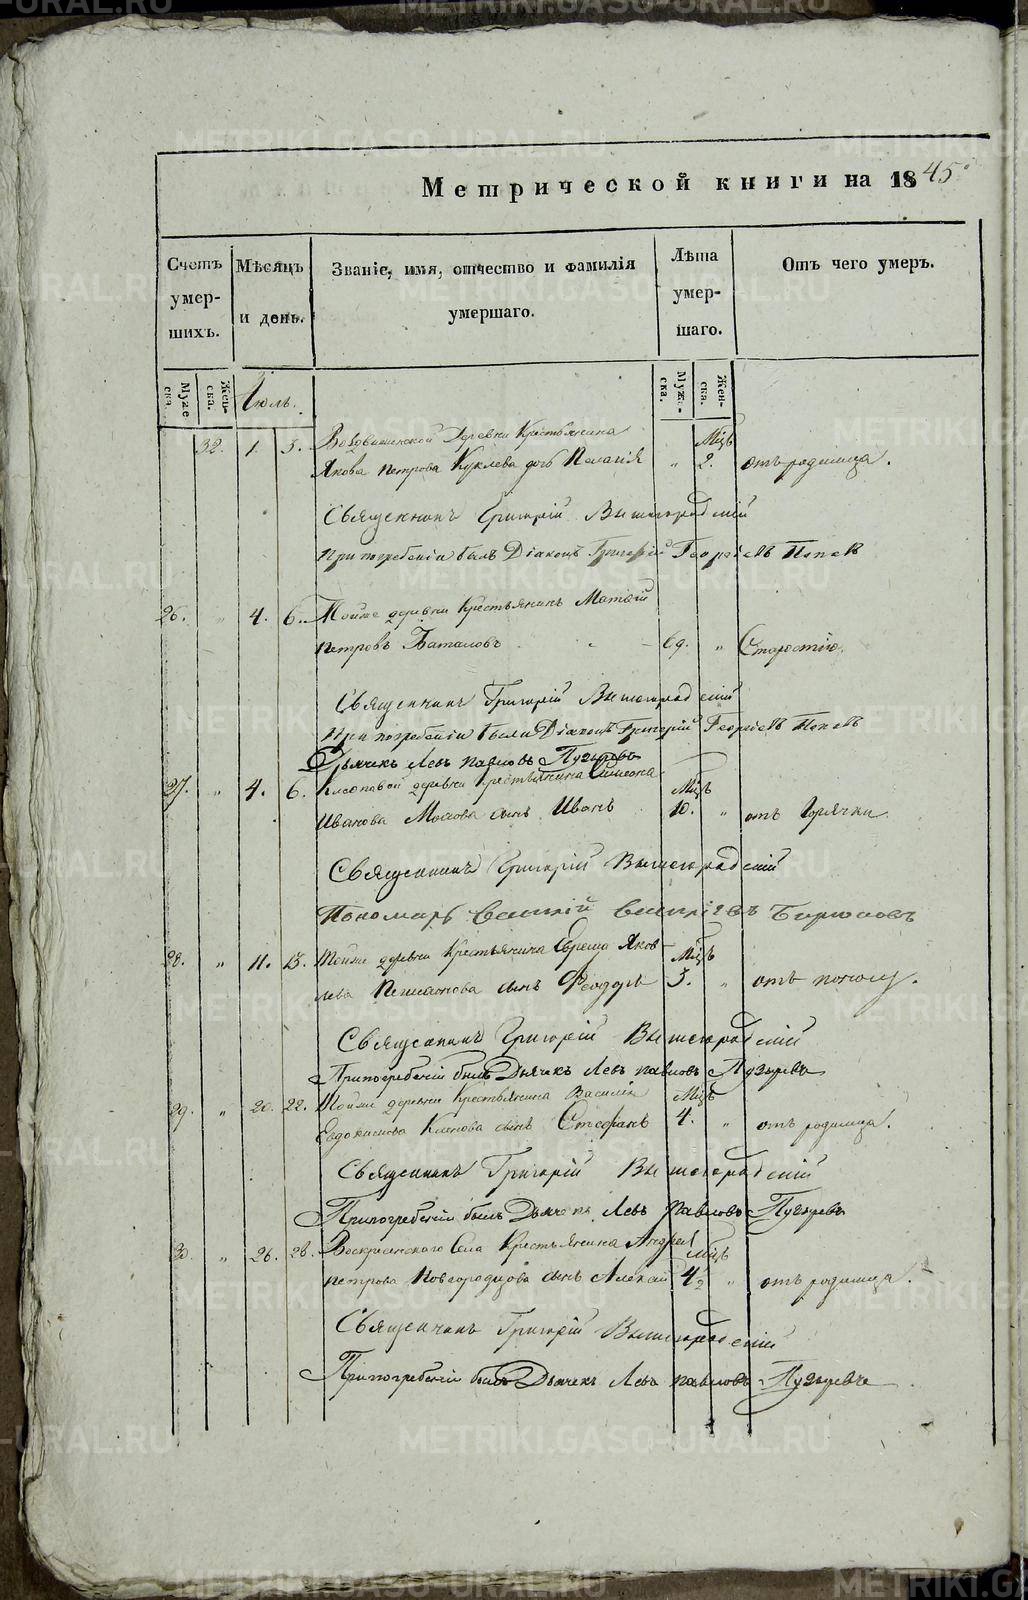 Метрической книги на 1845
Счетъ умер-шихъ.
Мѣсяцъ и день.
Званіе, имя, отчество и фамилія умершаго.
Лѣта умер-шаго.
Отъ чего умеръ.
Муже ска.
Жен-ска.
Іюль.
Муже-ска.
Жен-ска.
32. 1 3. деревни Крестьянина Мцъ
Якова Петрова дочь Пелагія „ 2. отъ родимца.
Священникъ Григорій Вышегородскій
При погребеніи былъ Діаконъ Григорій Георгіевъ Поповъ
26. „ 4. 6. Тойже деревни Крестьянинъ Матѳій
Петровъ Баталовъ 69. „ Старостію.
Священникъ Григорій Вышегородскій
При погребеніи были Діаконъ Григорій Георгіевъ Поповъ
Дьячекъ Левъ Павловъ Пузыревъ
27. „ 4. 6. деревни Крестьянина Симеона Мцъ
Иванова сынъ Иванъ 10. „ отъ Горячки.
Священникъ Григорій Вышегородскій
Пономарь Василій Василіевъ Бирюковъ
28. „ 11. 13. Тойже деревни Крестьянина Ефрема Яков- Мцъ
лева сынъ Феодоръ 3. „ отъ поносу.
Священникъ Григорій Вышегородскій
При погребеніи былъ Дьячекъ Левъ Павловъ Пузыревъ
29. „ 20. 22. Тойже деревни Крестьянина Василія Мцъ
Евдокимова сынъ Стефанъ 4. „ отъ родимца.
Священникъ Григорій Вышегородскій
При погребеніи былъ Дьячекъ Левъ Павловъ Пузыревъ
30. „ 26. 28. Воскресенского Села Крестьянина Андрея Мцъ
Петрова Новгородцова сынъ Алексѣй 4½ „ отъ родимца.
Священникъ Григорій Вышегородскій
При погребеніи былъ Дьячекъ Левъ Павловъ Пузыревъ
METRIKI.GASO-URAL.RU